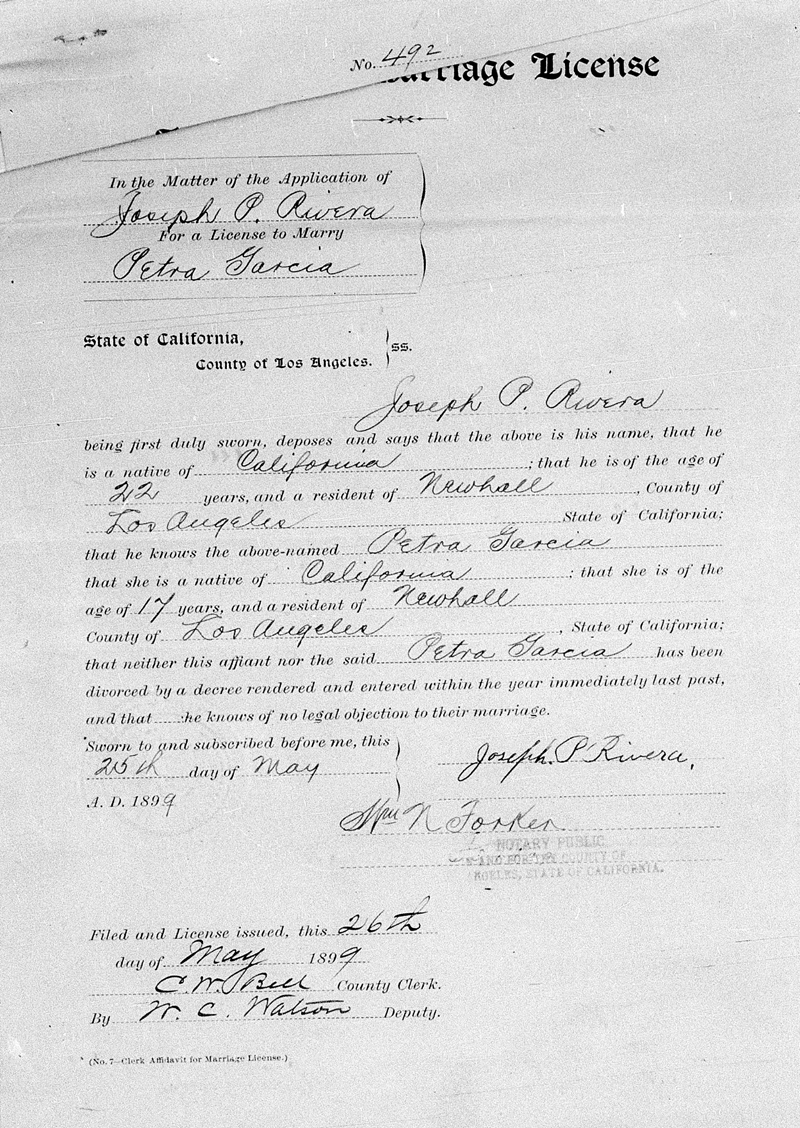 No. 492
Marriage License
In the Matter of the Application of
Joseph P. Rivera
For a License to Marry
Petra Garcia
State of California,
County of Los Angeles.
ss.
Joseph P. Rivera
being first duly sworn, deposes and says that the above is his name, that he
is a native of California ; that he is of the age of
22 years, and a resident of Newhall , County of
Los Angeles State of California;
that he knows the above-named Petra Garcia
that she is a native of California ; that she is of the
age of 17 years, and a resident of Newhall
County of Los Angeles , State of California;
that neither this affiant nor the said Petra Garcia has been
divorced by a decree rendered and entered within the year immediately last past,
and that he knows of no legal objection to their marriage.
Sworn to and subscribed before me, this
25th day of May
A. D. 1899
Joseph. P Rivera,
Wm N Forker
NOTARY PUBLIC
AND FOR THE COUNTY OF
NGELES, STATE OF CALIFORNIA.
Filed and License issued, this 26th
day of May 1899
C. W. Bell County Clerk.
By W. C. Watson Deputy.
(No. 7—Clerk Affidavit for Marriage License.)